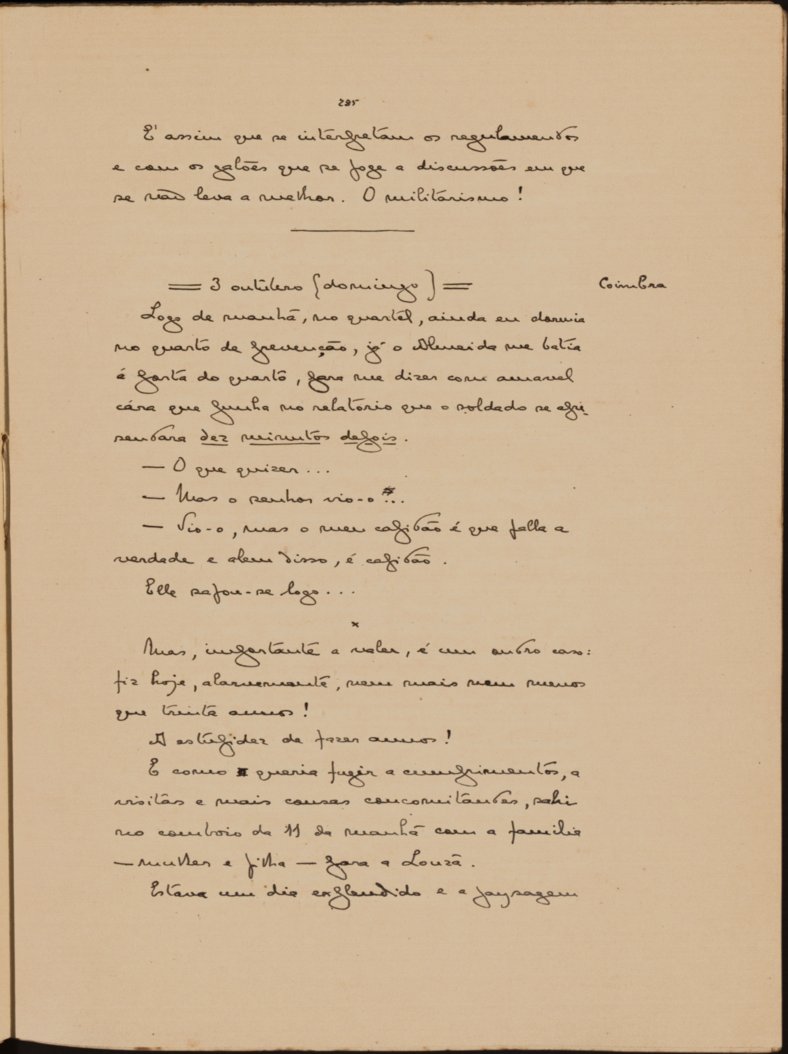 295
E' assim que se interpretam os regulamentos
e com os galões que se foge a discussões em que
se não leva a melhor. O militarismo!
= 3 outubro (domingo) = Coimbra
Logo de manhã, no quartel, ainda eu dormia
no quarto de prevenção, já o Almeida me batia
á porta do quarto, para me dizer com amavel
cára que punha no relatorio que o soldado se apre-
sentara dez minutos depois.
— O que quizer...
— Mas o senhor vio-o?..
— Vio-o, mas o meu capitão é que falla a
verdade e alem disso, é capitão.
Elle safou-se logo...
×
Mas, importante a valer, é um outro caso:
fiz hoje, alarvemente, nem mais nem menos
que trinta annos!
A estupidez de fazer annos!
E como queria fugir a cumprimentos, a
visitas e mais cousas concomitantes, sahi
no comboio da 11 da manhã com a familia
— mulher e filha — para a Louzã.
Estava um dia explendido e a paysagem